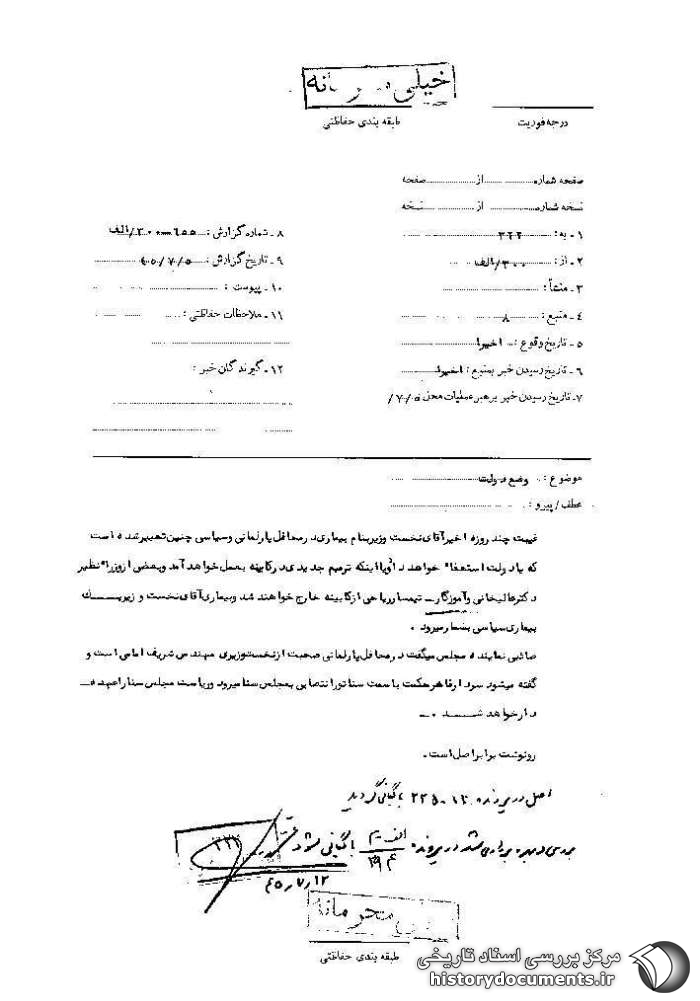 خیلی محرمانه
طبقه بندی حفاظتی
درجه فوریت
صفحه شماره ........ از ........ صفحه
نسخه شماره ........ از ........ نسخه
۱ـ به : ۳۲۲
۲ـ از : ۳۰۰/الف
۳ـ منشأ :
۴ـ منبع : ۸
۵ـ تاریخ وقوع : ـ اخیرا
۶ـ تاریخ رسیدن خبر بمنبع : اخیرا
۷ـ تاریخ رسیدن خبر برهبر عملیات محل ۷/۵/
۸ـ شماره گزارش : ۶۵۵ـ۳۰۰/الف
۹ـ تاریخ گزارش : ۴۵/۷/۵
۱۰ـ پیوست :
۱۱ـ ملاحظات حفاظتی :
۱۲ـ گیرندگان خبر :
موضوع : وضع دولت
عطف/پیرو :
غیبت چند روزه اخیر آقای نخست وزیر بنام بیماری در محافل پارلمانی و سیاسی چنین تعبیر شده است
که یا دولت استعفاء خواهد داد و یا اینکه ترمیم جدیدی در کابینه بعمل خواهد آمد و بعضی از وزراء نظیر
دکتر عالیخانی و آموزگار ـ تیمسار ریاحی از کابینه خارج خواهند شد و بیماری آقای نخست وزیر یـــک
بیماری سیاسی بشمار میرود .
صائبی نماینده مجلس میگفت در محافل پارلمانی صحبت از نخست وزیری مهندس شریف امامی است و
گفته میشود سردار فاخر حکمت با سمت سناتور انتصابی بمجلس سنا میرود و ریاست مجلس سنا را عهده ـ
دار خواهد شــد .ـ
رونوشت برابر اصل است .
اصل در پرونده ۱۲ـ۲۲۵ بایگانی گردید
بررسی و بهره برداری شد در پرونده الف م/۳۹۴ بایگانی شود
۳۲۲
۴۵/۷/۱۲
خیلی محرمانه
طبقه بندی حفاظتی
مرکز بررسی اسناد تاریخی
historydocuments.ir